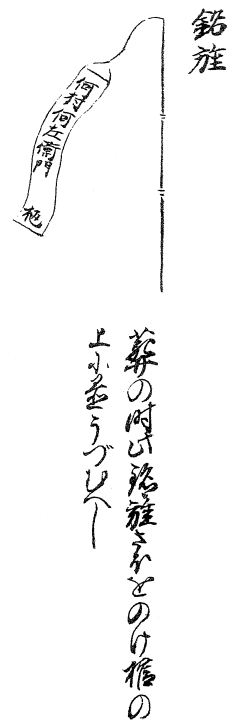 銘旌
何村何左衛門 柩
葬の時此銘旌さほをのけ棺の
上に置うづむへし